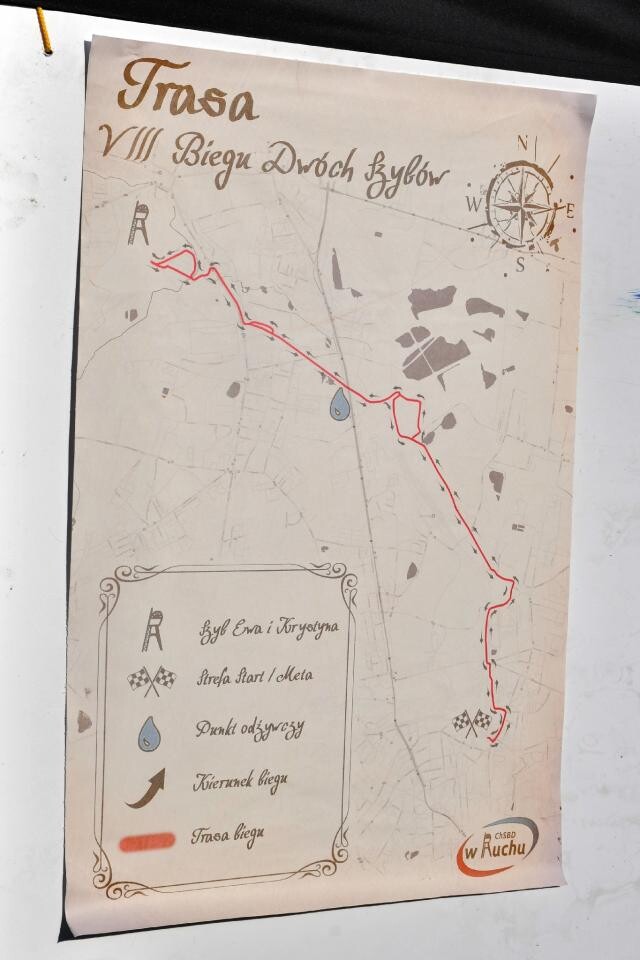 Trasa
VIII Biegu Dwóch Szybów
N
W E
S
Szyb Ewa i Krystyna
Strefa Start / Meta
Punkt odżywczy
Kierunek biegu
Trasa biegu
ChSBD
w Ruchu